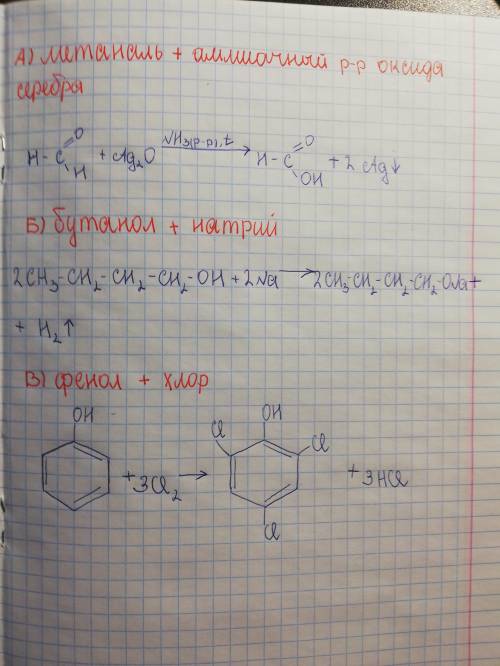 А) метаналь + аммиачный р-р оксида
серебра
H-C=O
H + Ag₂O NH₃(р-р), t → H-C=O
OH + 2Ag↓
Б) бутанол + натрий
2CH₃-CH₂-CH₂-CH₂-OH + 2Na → 2CH₃-CH₂-CH₂-CH₂-ONa +
+ H₂↑
В) фенол + хлор
OH
+ 3Cl₂ →
OH
Cl
Cl
Cl
+ 3HCl